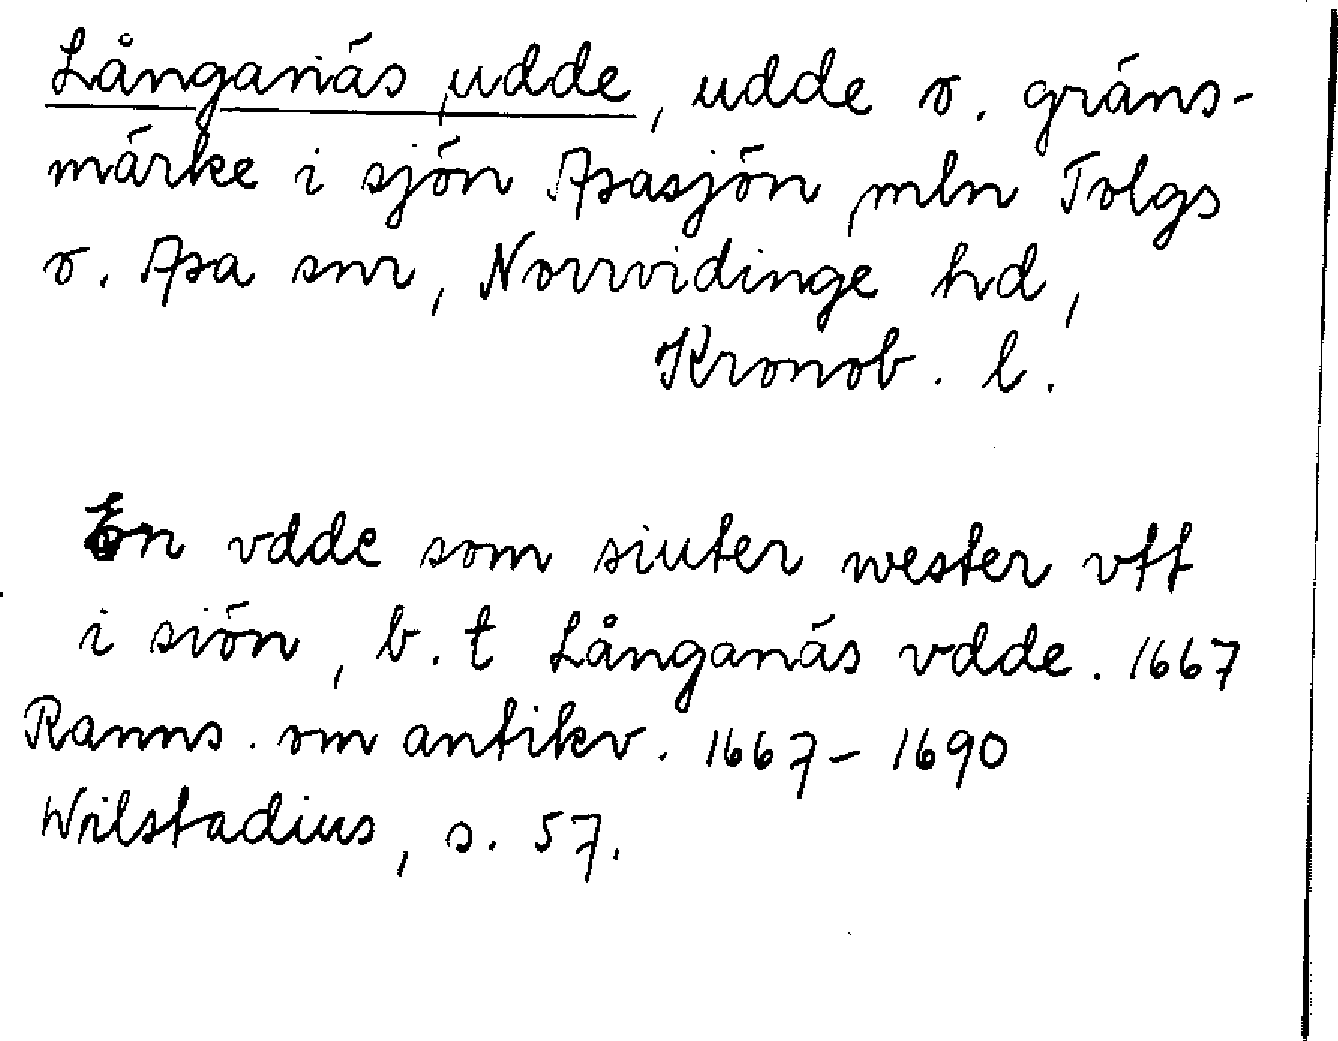 Långanäs udde, udde o. gräns-
märke i sjön Asasjön mln Tolgs
o. Asa snr, Norrvidinge hd,
Kronob. l.
En vdde som siuter wester vtt
i siön, b. t Långanäs vdde. 1667
Ranns. om antikv. 1667-1690
Wilstadius, s. 57.